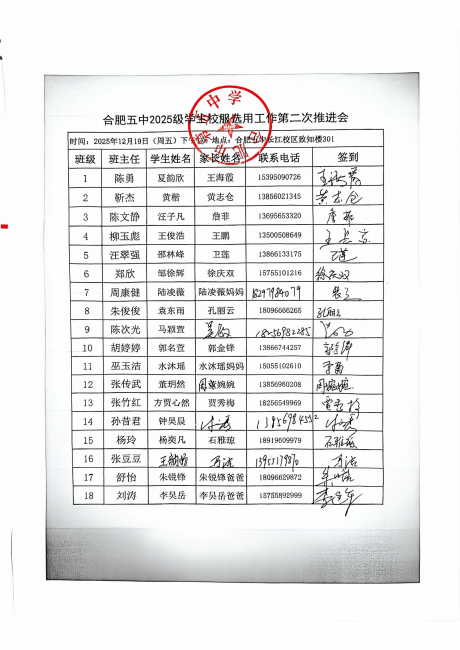 合肥五中2025级学生校服选用工作第二次推进会
时间：2025年12月19日（周五）下午 地点：合肥五中长江校区致知楼301
班级 班主任 学生姓名 家长姓名 联系电话 签到
1 陈勇 夏韵欣 王海霞 15395090726 王海霞
2 靳杰 黄楷 黄志仓 13856021345 黄志仓
3 陈文静 汪子凡 詹菲 13695653320 詹菲
4 柳玉彪 王俊浩 王鹏 13500508649
5 汪翠强 邵林峰 卫莲 13866133175 卫莲
6 郑欣 邹徐辉 徐庆双 15755101216 徐庆双
7 周康健 陆凌薇 陆凌薇妈妈 18297984079
8 朱俊俊 袁东雨 孔丽云 18096666265 孔丽云
9 陈次光 马颖萱 18256982285
10 胡婷婷 郭名萱 郭金锋 13866744257 郭金锋
11 巫玉洁 水沐瑶 水沐瑶妈妈 15055102610
12 张传武 董玥然 周婉婉 13856980208 周婉婉
13 张竹红 方贾心然 贾秀梅 18256549969
14 孙昔君 钟昊晨
15 杨玲 杨奕凡 石雅琼 18919609979 石雅琼
16 张豆豆 万洁 万洁
17 舒怡 朱锐锋 朱锐锋爸爸 18096629872
18 刘涛 李昊岳 李昊岳爸爸 15755892999